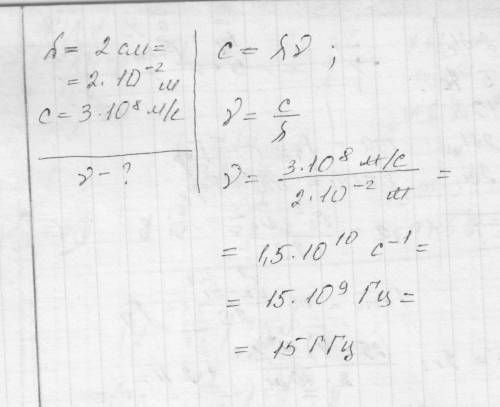 λ = 2 см =
= 2·10⁻² м
c = 3·10⁸ м/с
ν - ?
c = λν ;
ν = c/λ
ν = 3·10⁸ м/с / 2·10⁻² м =
= 1,5·10¹⁰ с⁻¹ =
= 15·10⁹ Гц =
= 15 ГГц